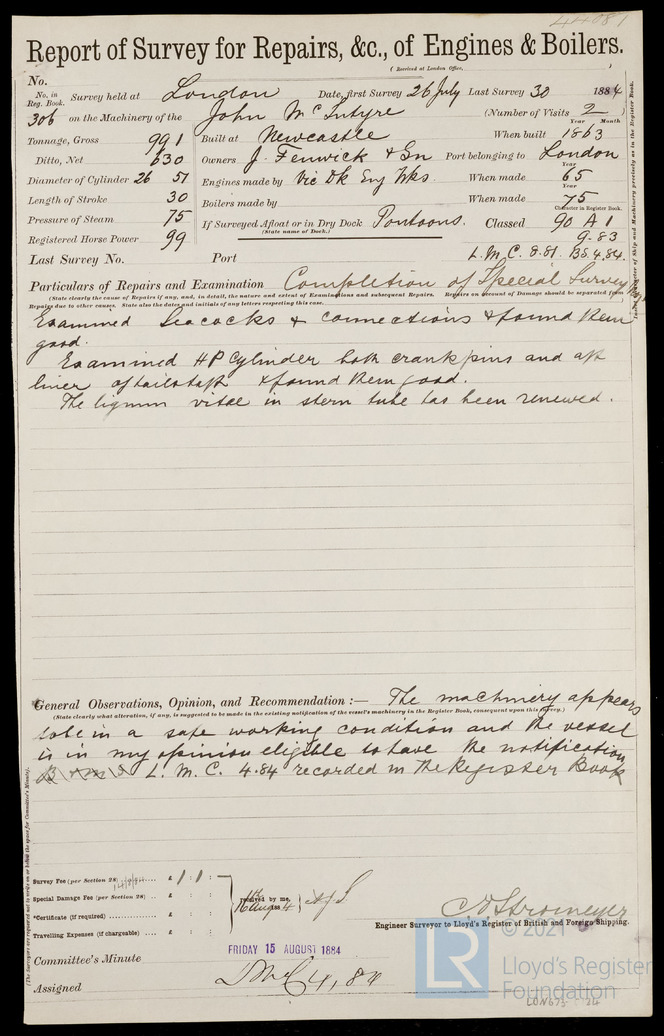 44081
Report of Survey for Repairs, &c., of Engines & Boilers.
( Received at London Office,
No.
No. in Reg. Book. Survey held at London Date, first Survey 26 July Last Survey 30 1884
306 on the Machinery of the John McIntyre (Number of Visits 2 )
Year Month
Tonnage, Gross 991 Built at Newcastle When built 1863
Ditto, Net 630 Owners J. Fenwick & Son Port belonging to London
Diameter of Cylinder 26 51 Engines made by Vic Dk Eng Wks. When made 65
Year
Length of Stroke 30 Boilers made by When made 75
Year
Pressure of Steam 75 If Surveyed Afloat or in Dry Dock Pontoons. Classed 90 A 1
(State name of Dock.)
Character in Register Book.
Registered Horse Power 99 9.83
Last Survey No. Port L.M.C. 8.81. BS.4.84.
Particulars of Repairs and Examination Completion of Special Survey
(State clearly the cause of Repairs if any, and, in detail, the nature and extent of Examinations and subsequent Repairs. Repairs on account of Damage should be separated from
Repairs due to other causes. State also the dates and initials of any letters respecting this case.
Examined Seacocks & connections & found them
good.
Examined HP Cylinder both crank pins and aft
liner of tailshaft & found them good.
The lignum vitae in stern tube has been renewed.
General Observations, Opinion, and Recommendation :— The machinery appears
(State clearly what alteration, if any, is suggested to be made in the existing notification of the vessel's machinery in the Register Book, consequent upon this survey.)
to be in a safe working condition and the vessel
is in my opinion eligible to have the notification
L. M. C. 4.84 recorded in the Register Book
Survey Fee (per Section 28) £ 1 : 1 :
Special Damage Fee (per Section 28) .. £ : :
*Certificate (if required) £ : :
Travelling Expenses (if chargeable) £ : :
received by me,
16th Aug 1884
Engineer Surveyor to Lloyd's Register of British and Foreign Shipping.
Committee's Minute
FRIDAY 15 AUGUST 1884
Assigned LMC 4,84
© 2021
LR
Lloyd's Register
Foundation